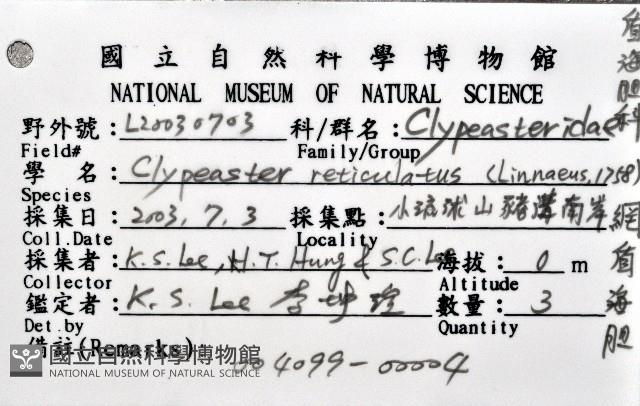 國立自然科學博物館
NATIONAL MUSEUM OF NATURAL SCIENCE
野外號：L20030703 科/群名：Clypeasteridae
Field# Family/Group
學 名：Clypeaster reticulatus (Linnaeus, 1758)
Species
採集日：2003. 7. 3 採集點：小琉球山豬溝南岸
Coll.Date Locality
採集者：K.S. Lee, H.T. Hung & S.C. Lee 海拔：0 m
Collector Altitude
鑑定者：K. S. Lee 李坤瑄 數量：3
Det.by Quantity
備註(Remarks)
004099-00004
盾海胆科
網盾海胆
國立自然科學博物館
NATIONAL MUSEUM OF NATURAL SCIENCE